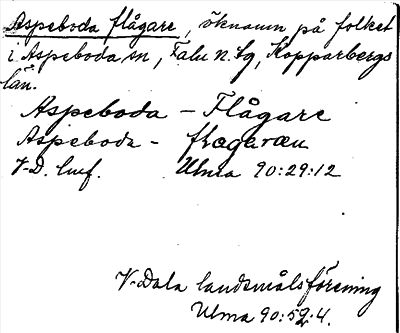 Aspeboda flågare, öknamn på folket
i Aspeboda sn, Falu n. tg, Kopparbergs
län.
Aspeboda - Flågare
Aspeboda -
V-D. lmf. Ulma 90:29:12
V-Dala landsmålsförening
Ulma 90:52:4.